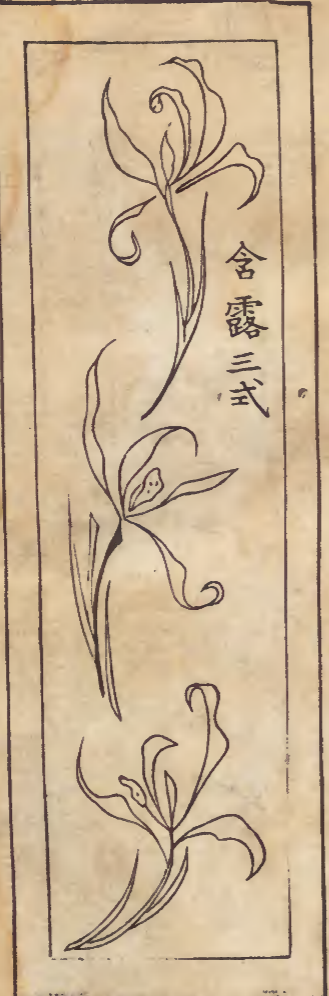 含露三式